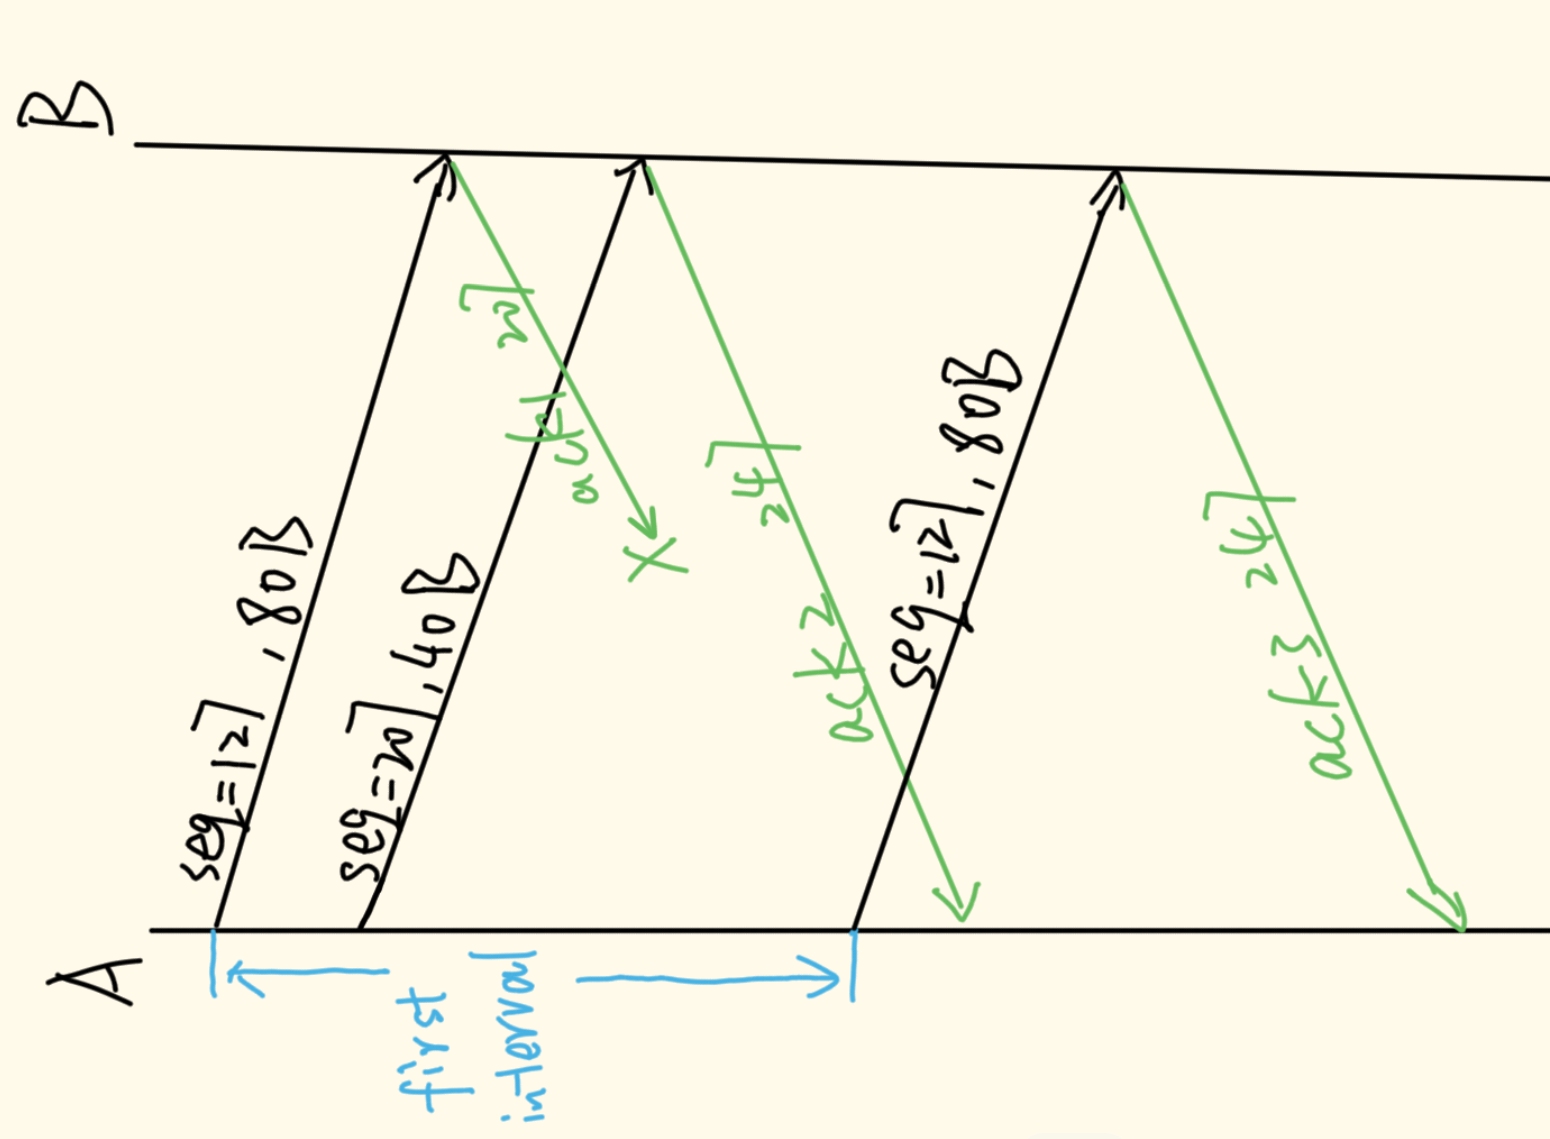 A
B
seq=127, 80B
seq=207, 40B
first
interval
ack1 207
X
ack2 247
seq=127, 80B
ack3 247